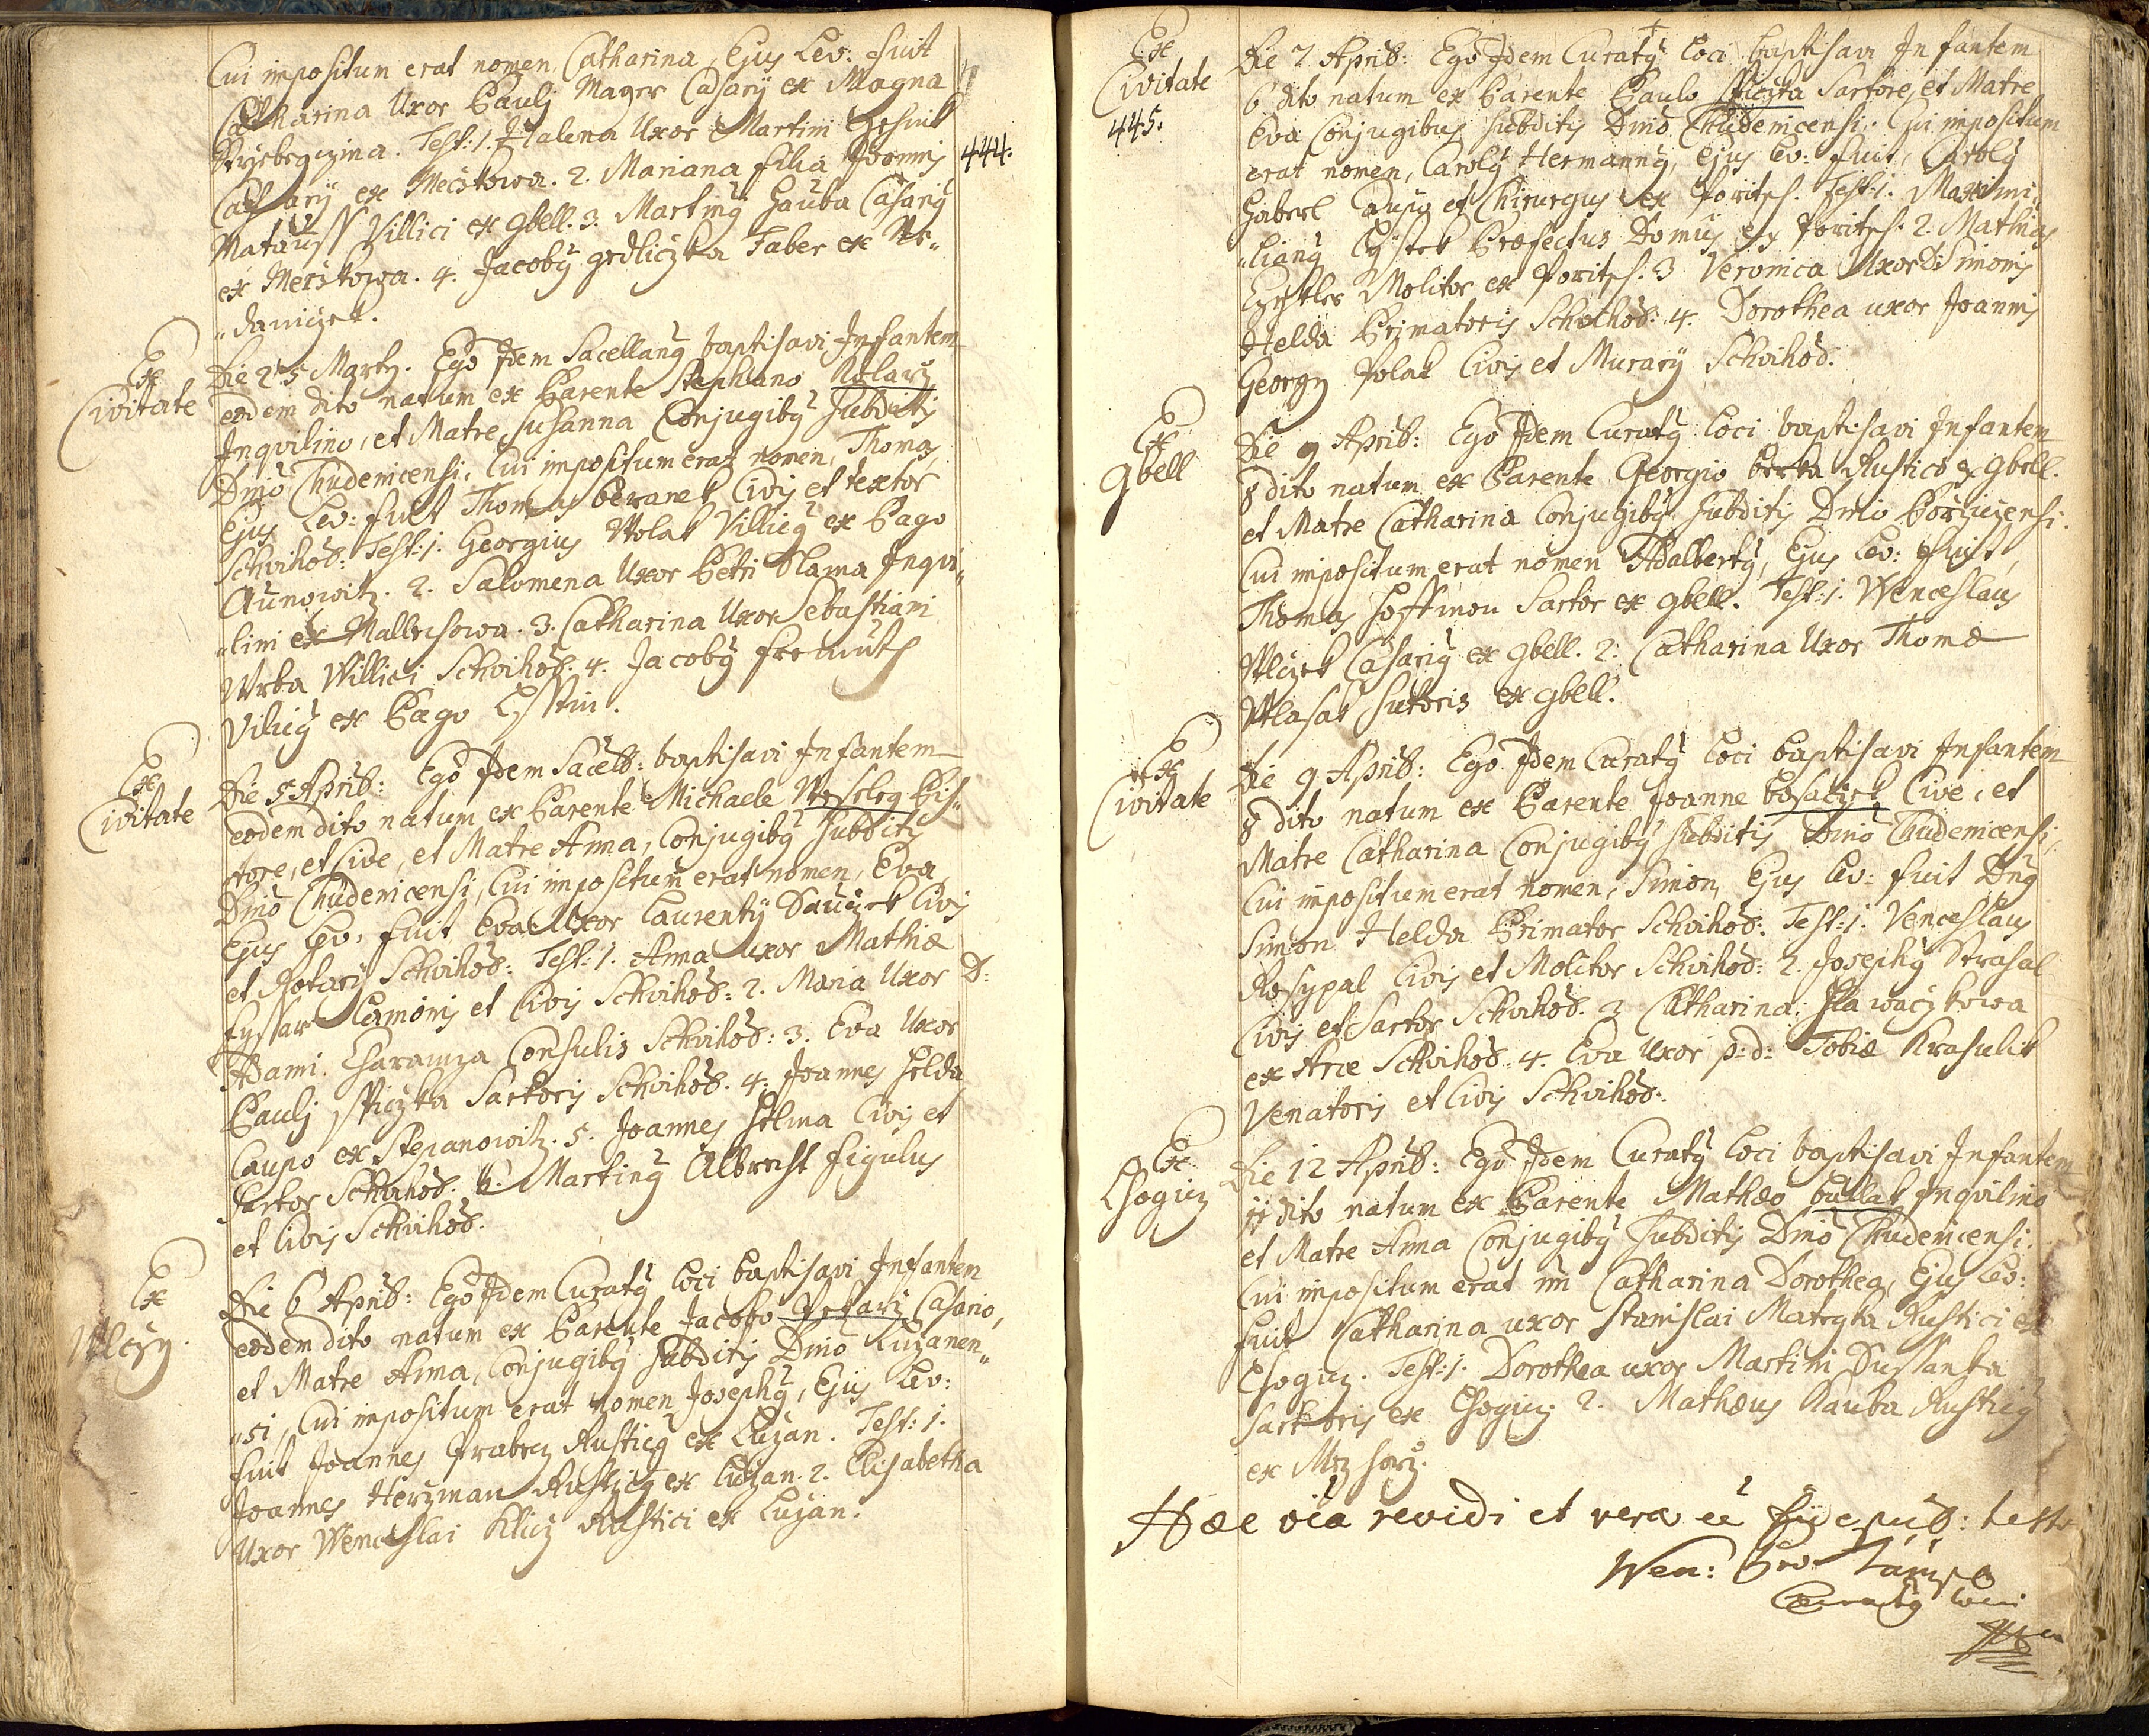 Cui impositum erat nomen Catharina, Ejus Lev: fuit
Catharina Uxor Pauli Mayer Casarÿ ex Magna
Test: 1. Halena Uxor Martini
Casarÿ ex Mecžkowa. 2. Mariana filia Joannis
444.
Matauss Villici ex gbell. 3. Martinÿ Hauba Casariÿ
ex Mecžkowa. 4. Jacobÿ grdliczka Faber ex Ne„
„daniczek.
Ex
Civitate
Die 25 Martÿ. Ego Idem Sacellanÿ baptisavi Infantem
eodem dito natum ex Parente Stephano Kolarz
Inqvilino, et Matre Susanna Conjugibÿ Subditis
Dnio Chudenicensi, Cui impositum erat nomen, Thomas,
Ejus Lev: fuit Thomas beranek Civis et textor
Schvihod: Test: 1. Georgius Wolak Villicÿ ex Pago
Aunowitz. 2. Salomena Uxor Petri Slama Inqvi„
„lini ex Mallechowa. 3. Catharina Uxor Sebastiani
Wrba Willici Schvihod. 4. Jacobÿ fremuth
Vilicÿ ex Pago
Ex
Civitate
Die 5 Aprib: Ego Idem Sacell: baptisavi Infantem
eodem dito natum ex Parente Michaele Weseleg Pis„
tore, et Cive, et Matre Anna, Conjugibÿ Subditis
Dnio Chudenicensi, Cui impositum erat nomen, Eva,
Ejus Lev: fuit Eva Uxor Laurentÿ Sauczek Civis
et Rotarÿ Schvihod: Test: 1. Anna uxor Mathiæ
fyssar Lanionis et Civis Schvihod: 2. Maria Uxor D:
Adami Charamza Consulis Schvihod: 3. Eva Uxor
Pauli Spiczka Sartoris Schvihod. 4. Joannes Helda
Caupo ex Stepanowitz. 5. Joannes Jelma Civis et
Sartor Schvihod. 6. Martinÿ Albrecht figulus
et Civis Schvihod.
Ex
Wlczy.
Die 6 Aprib: Ego Idem Curatÿ Loci baptisavi Infantem
eodem dito natum ex Parente Jacobo Pekarz Casario,
et Matre Anna, Conjugibÿ Subditis Dnio Luzanen„
„si, Cui impositum erat nomen Josephÿ, Ejus Lev:
fuit Joannes Wrabecz Rusticÿ ex Luzan. Test: 1.
Joannes Herzman Rusticÿ ex Luzan. 2. Elisabetha
Uxor Wenceslai Klicz Rustici ex Luzan.
Ex
Civitate
445.
Die 7 Aprib: Ego Idem Curatÿ Loci baptisavi Infantem
6 dito natum ex Parente Paulo Spiczka Sartore, et Matre
Eva Conjugibus Subditis Dnio Chudenicensi. Cui impositum
erat nomen, Carolÿ Hermannÿ, Ejus Lev: fuit, Carolÿ
Haberl Caupo et Chirurgus ex Poritsch. Test: 1. Maximi„
„lianÿ Præfectus Domus ex Poritsch. 2. Mathias
Molitor ex Poritsch. 3 Veronica Uxor D: Simonis
Helda Primatoris Schvihod: 4. Dorothea uxor Joannis
Georgÿ Polak Civis et Murarÿ Schvihod.
Ex
gbell
Die 9 Aprib: Ego Idem Curatÿ Loci baptisavi Infantem
8 dito natum ex Parente Georgio berka Rustico ex gbell.
et Matre Catharina Conjugibÿ Subditis Dnio Porzyczensi.
Cui impositum erat nomen Adalbertÿ, Ejus Lev: fuit,
Thomas Hoffmon Sartor ex gbell. Test: 1. Wenceslaus
Wlczek Casariÿ ex gbell. 2. Catharina Uxor Thomæ
Wlasak Sutoris ex gbell.
Ex
Civitate
Die 9 Aprib: Ego Idem Curatÿ Loci baptisavi Infantem
8 dito natum ex Parente Joanne Cive, et
Matre Catharina Conjugibÿ Subditis Dnio Chudenicensi,
Cui impositum erat nomen, Simon, Ejus Lev: fuit Dnÿ
Simon Helda Primator Schvihod: Test: 1. Venceslaus
Rosypal Civis et Molitor Schvihod: 2. Josephÿ Strasal
Civis et Sartor Schvihod. 3 Catharina Hlawaczkowa
ex Arce Schvihod: 4. Eva Uxor p: d: Tobiæ Krasulik
Venatoris et Civis Schvihod:
Ex
Chogicz
Die 12 Aprib: Ego Idem Curatÿ Loci baptisavi Infantem
11 dito natum ex Parente Mathæo bullak Inqvilino
et Matre Anna Conjugibÿ Subditis Dnio Chudenicensi.
Cui impositum erat nn Catharina Dorothea, Ejus Lev:
fuit Catharina uxor Stanislai Mategka Rustici ex
Chogicz. Test: 1. Dorothea uxor Martini Dussanka
Sartoris ex Chogicz 2. Mathæus Kauba Rusticÿ
ex
Hæc oīa revidi et vera ēē fide pub: testor
Wen:
Curatÿ Loci